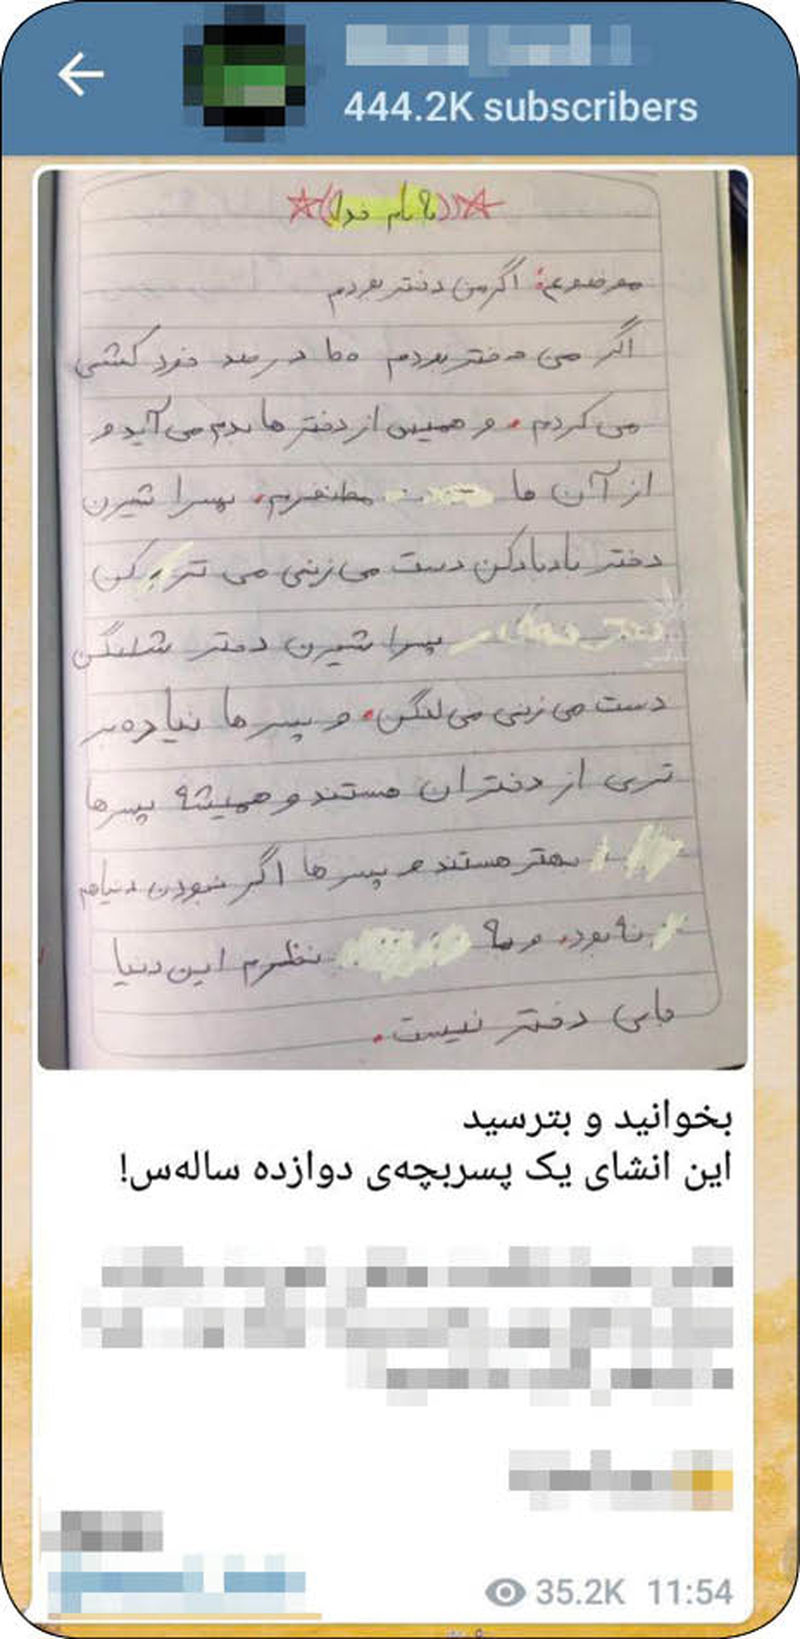 444.2K subscribers
((به نام خدا))
موضوع: اگر من دختر بودم
اگر من دختر بودم ۱۰۰ درصد خود کشی
می کردم. و همیس از دختر ها بدم می آید و
از آن ها متنفرم. پسرا شیرن
دختر بادبادکن دست می زنی می ترکن
پسرا شیرن دختر شلنگن
دست می زنی می لنگن. و پسر ها نیاده بر
تری از دختران هستند و همیشه پسرها
بهتر هستند و پسر ها اگر نبودن دنیاهم
نه بود. و به نظرم این دنیا
جای دختر نیست.
بخوانید و بترسید
این انشای یک پسربچه‌ی دوازده ساله‌س!
35.2K 11:54